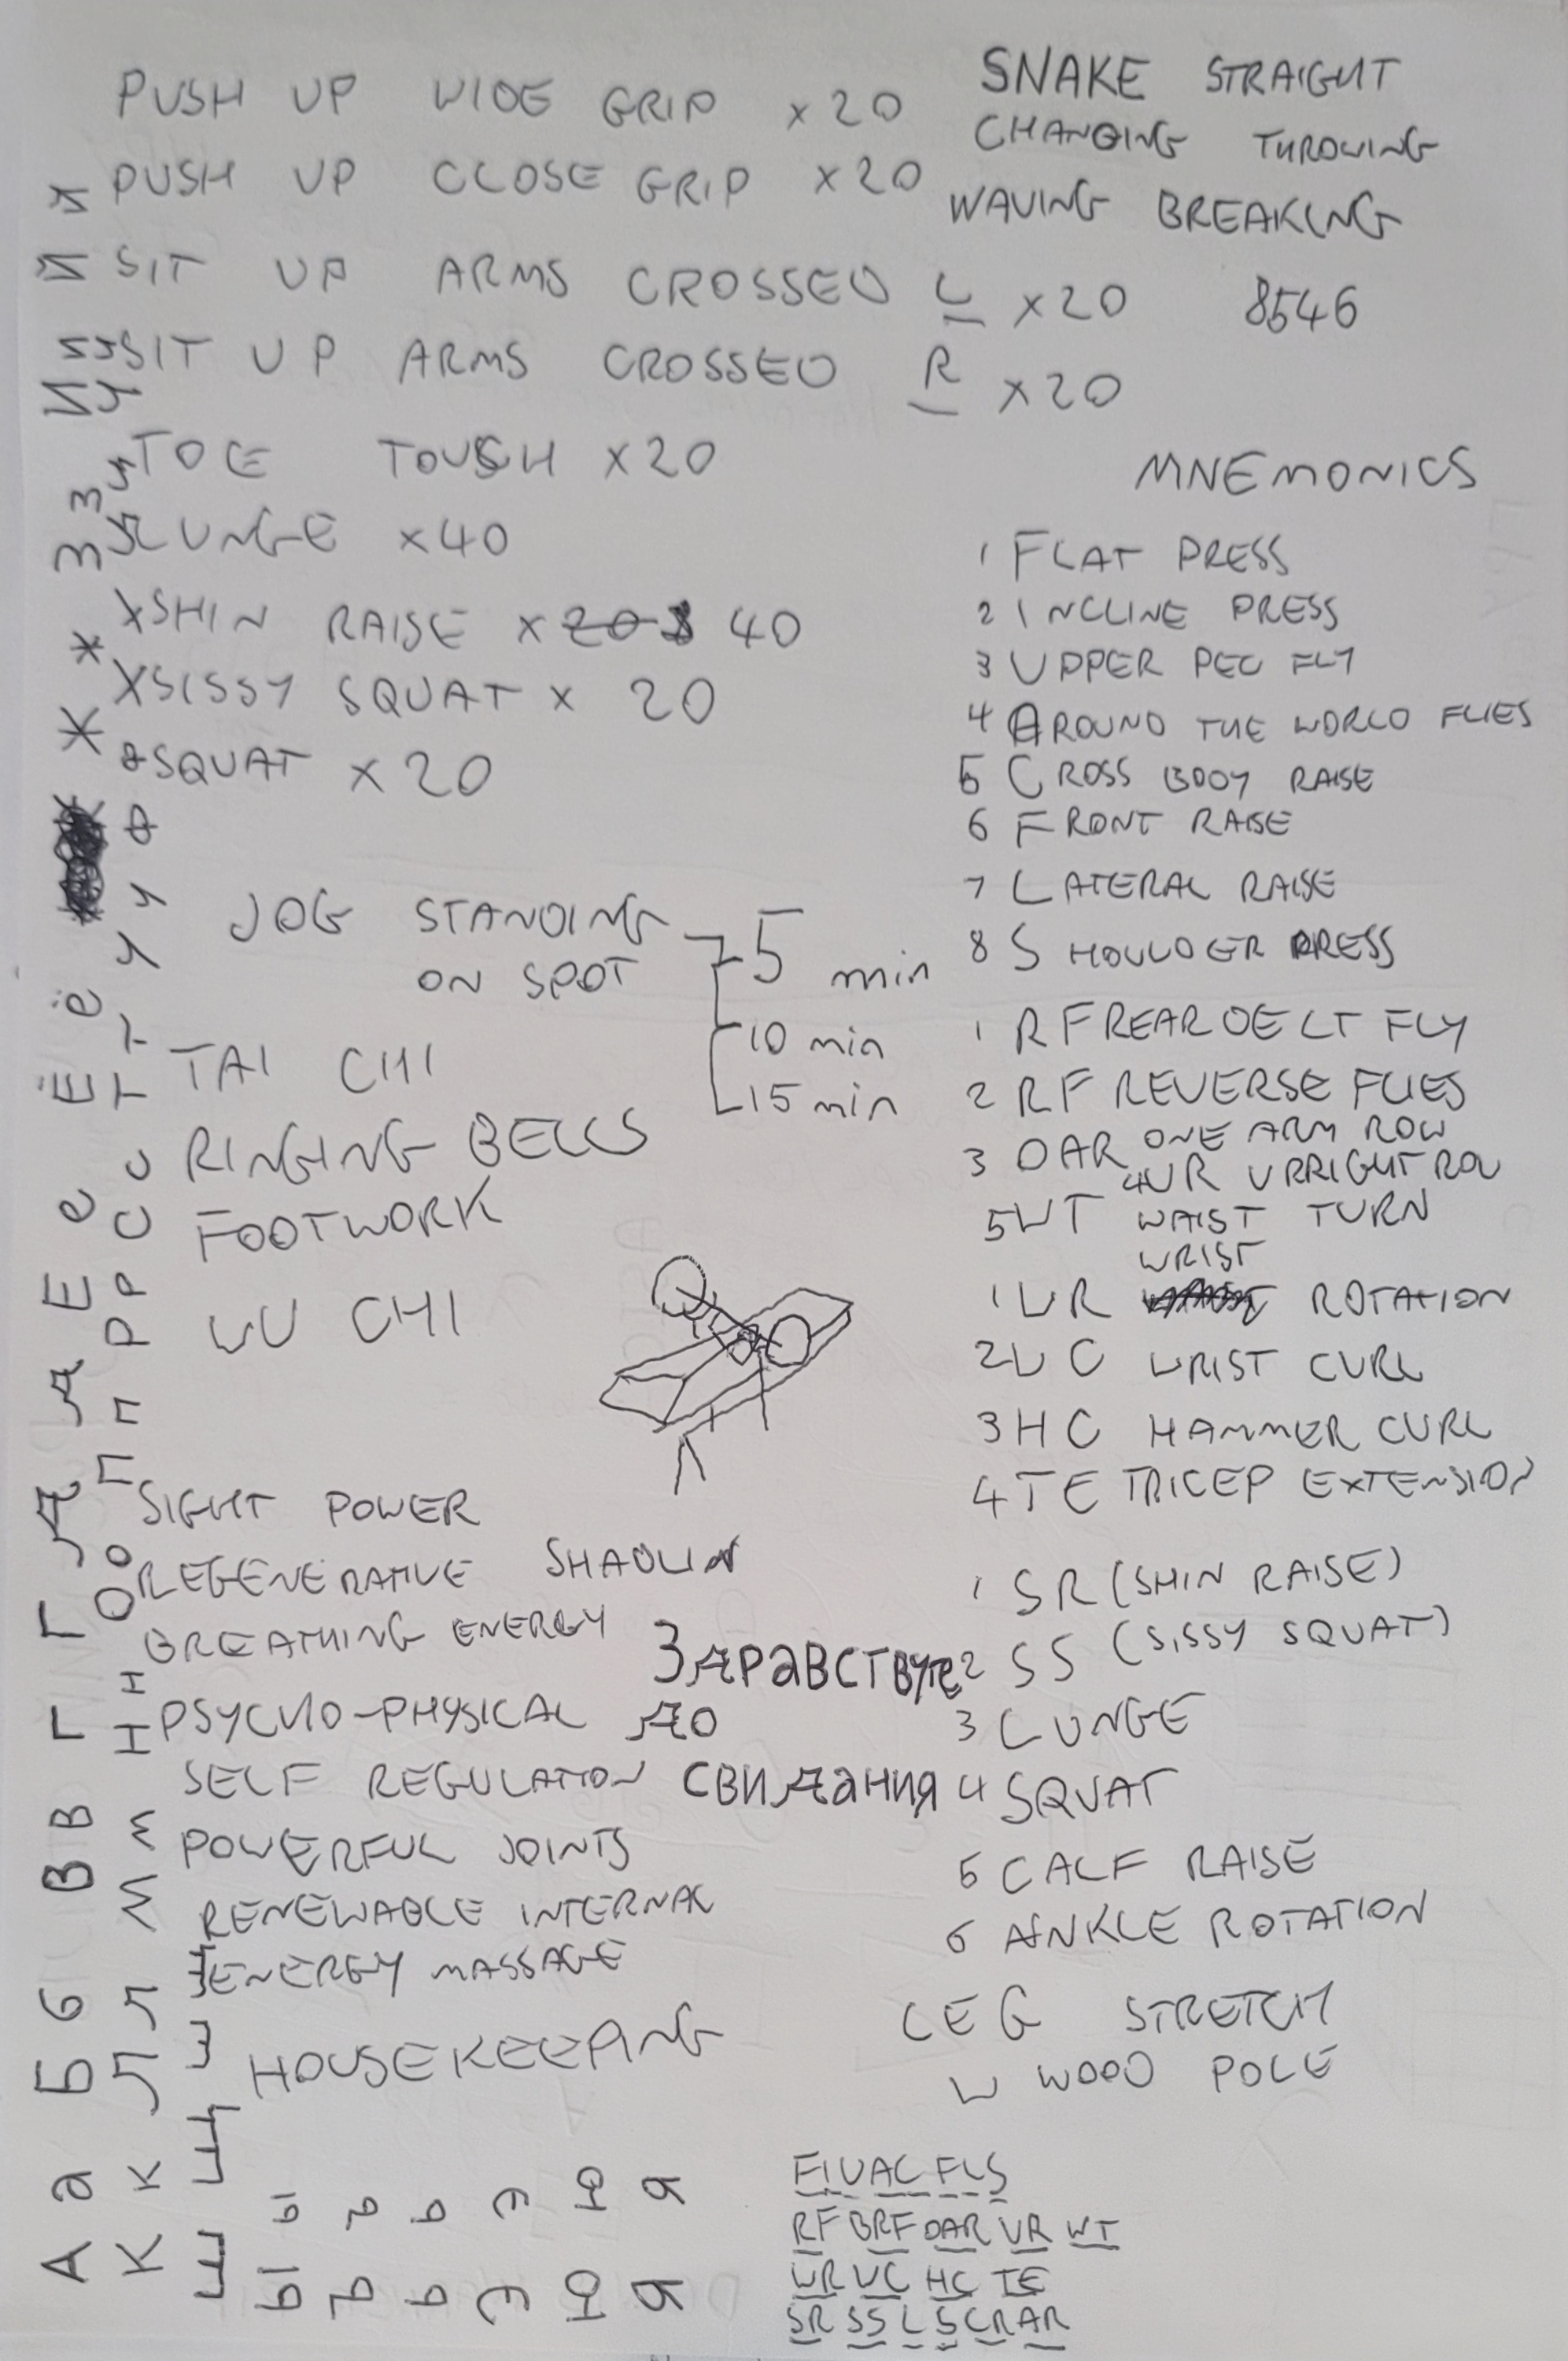 PUSH UP WIDE GRIP x 20
PUSH UP CLOSE GRIP x 20
SIT UP ARMS CROSSED L x 20
SIT UP ARMS CROSSED R x 20
TOE TOUCH x 20
LUNGE x 40
SHIN RAISE x 20 40
SISSY SQUAT x 20
SQUAT x 20
JOG STANDING
ON SPOT
5 min
10 min
15 min
TAI CHI
RINGING BELLS
FOOTWORK
WU CHI
SIGHT POWER
REGENERATIVE SHAOLIN
BREATHING ENERGY
PSYCHO-PHYSICAL
SELF REGULATION
POWERFUL JOINTS
RENEWABLE INTERNAL
ENERGY MASSAGE
HOUSEKEEPING
Здравствуте
До
свидания
SNAKE STRAIGHT
CHANGING THROWING
WAVING BREAKING
8546
MNEMONICS
1 FLAT PRESS
2 INCLINE PRESS
3 UPPER PEC FLY
4 AROUND THE WORLD FLIES
5 CROSS BODY RAISE
6 FRONT RAISE
7 LATERAL RAISE
8 SHOULDER PRESS
1 RF REAR DELT FLY
2 RF REVERSE FLIES
3 OAR ONE ARM ROW
4 UR UPRIGHT ROW
5 WT WAIST TURN
1 WR WRIST ROTATION
2 WC WRIST CURL
3 HC HAMMER CURL
4 TE TRICEP EXTENSION
1 SR (SHIN RAISE)
2 SS (SISSY SQUAT)
3 LUNGE
4 SQUAT
5 CALF RAISE
6 ANKLE ROTATION
LEG STRETCH
W WOOD POLE
FIUAC FLS
RF BRF OAR UR WT
WR WC HC TE
SR SS L S CR AR
А а Б б В в Г г Д д Е е Ё ё Ж ж З з И и Й й
К к Л л М м Н н О о П п Р р С с Т т У у Ф ф Х х
Ш ш Щ щ
Ы ы
Ъ ъ
Ь ь
Э э
Ю ю
Я я